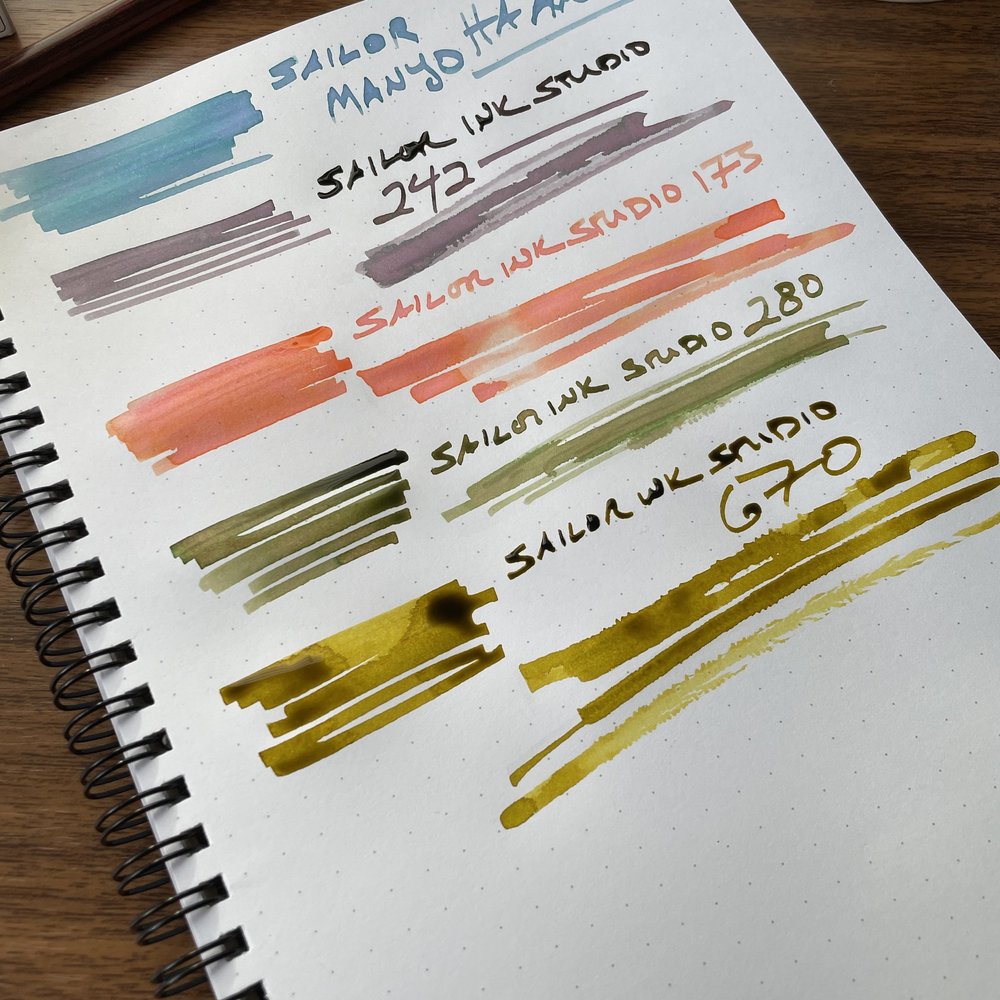 SAILOR
MANYO
SAILOR INK STUDIO
242
SAILOR INK STUDIO 175
SAILOR INK STUDIO 280
SAILOR INK STUDIO
670